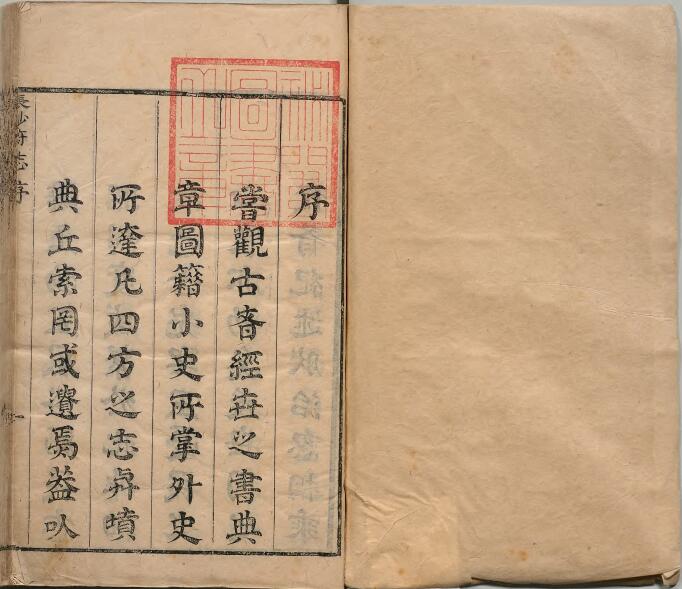 序
嘗觀古昔經世之書典
章圖籍小史所掌外史
所達凡四方之志與墳
典丘索罔或遺焉蓋以
長沙府志序